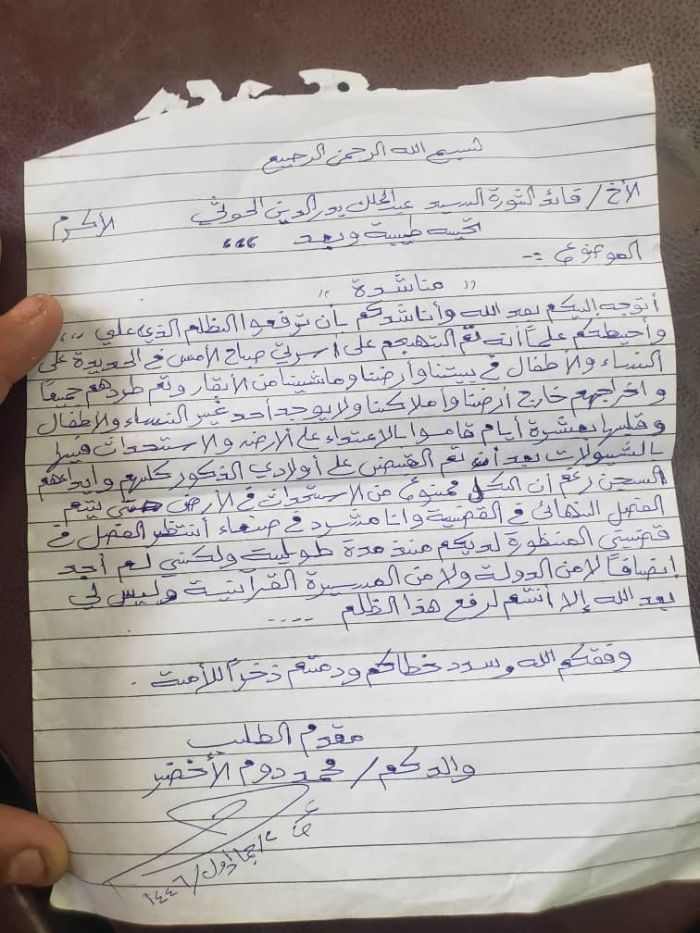 بسم الله الرحمن الرحيم
الأخ / قائد الثورة السيد عبدالملك بدرالدين الحوثي الأكرم
تحيه طيبة وبعد ،،،
الموضوع :-
" مناشدة "
أتوجه إليكم بعد الله وأناشدكم بأن ترفعوا الظلم الذي علي ،،،
وأحيطكم علماً أنه تم التهجم على أسرتي صباح الأمس في الحديدة على
النساء والأطفال في بيتنا وأرضنا وماشيتنا من الأبقار وتم طردهم جميعاً
واخراجهم خارج أرضنا وأملاكنا ولا يوجد أحد غير النساء والأطفال
وقبلها بعشرة أيام قاموا بالاعتداء على الارض والاستحداث فيها
بالشيولات بعد أن تم القبض على أولادي الذكور كلهم وايداعهم
السجن رغم أن الكل ممنوع من الاستحداث في الأرض حتى يتم
الفصل النهائي في القضية وانا مشرد في صنعاء أنتظر الفصل في
قضيتي المنظورة لديكم منذ مدة طويلة ولكنني لم أجد
إنصافاً لا من الدولة ولا من المسيرة القرآنية وليس لي
بعد الله إلا أنتم لرفع هذا الظلم ....
وفقكم الله وسدد خطاكم ودمتم ذخراً للأمة .
مقدم الطلب
والدكم / محمد دوم الأخضر
جماد أول / ١٤٤٦